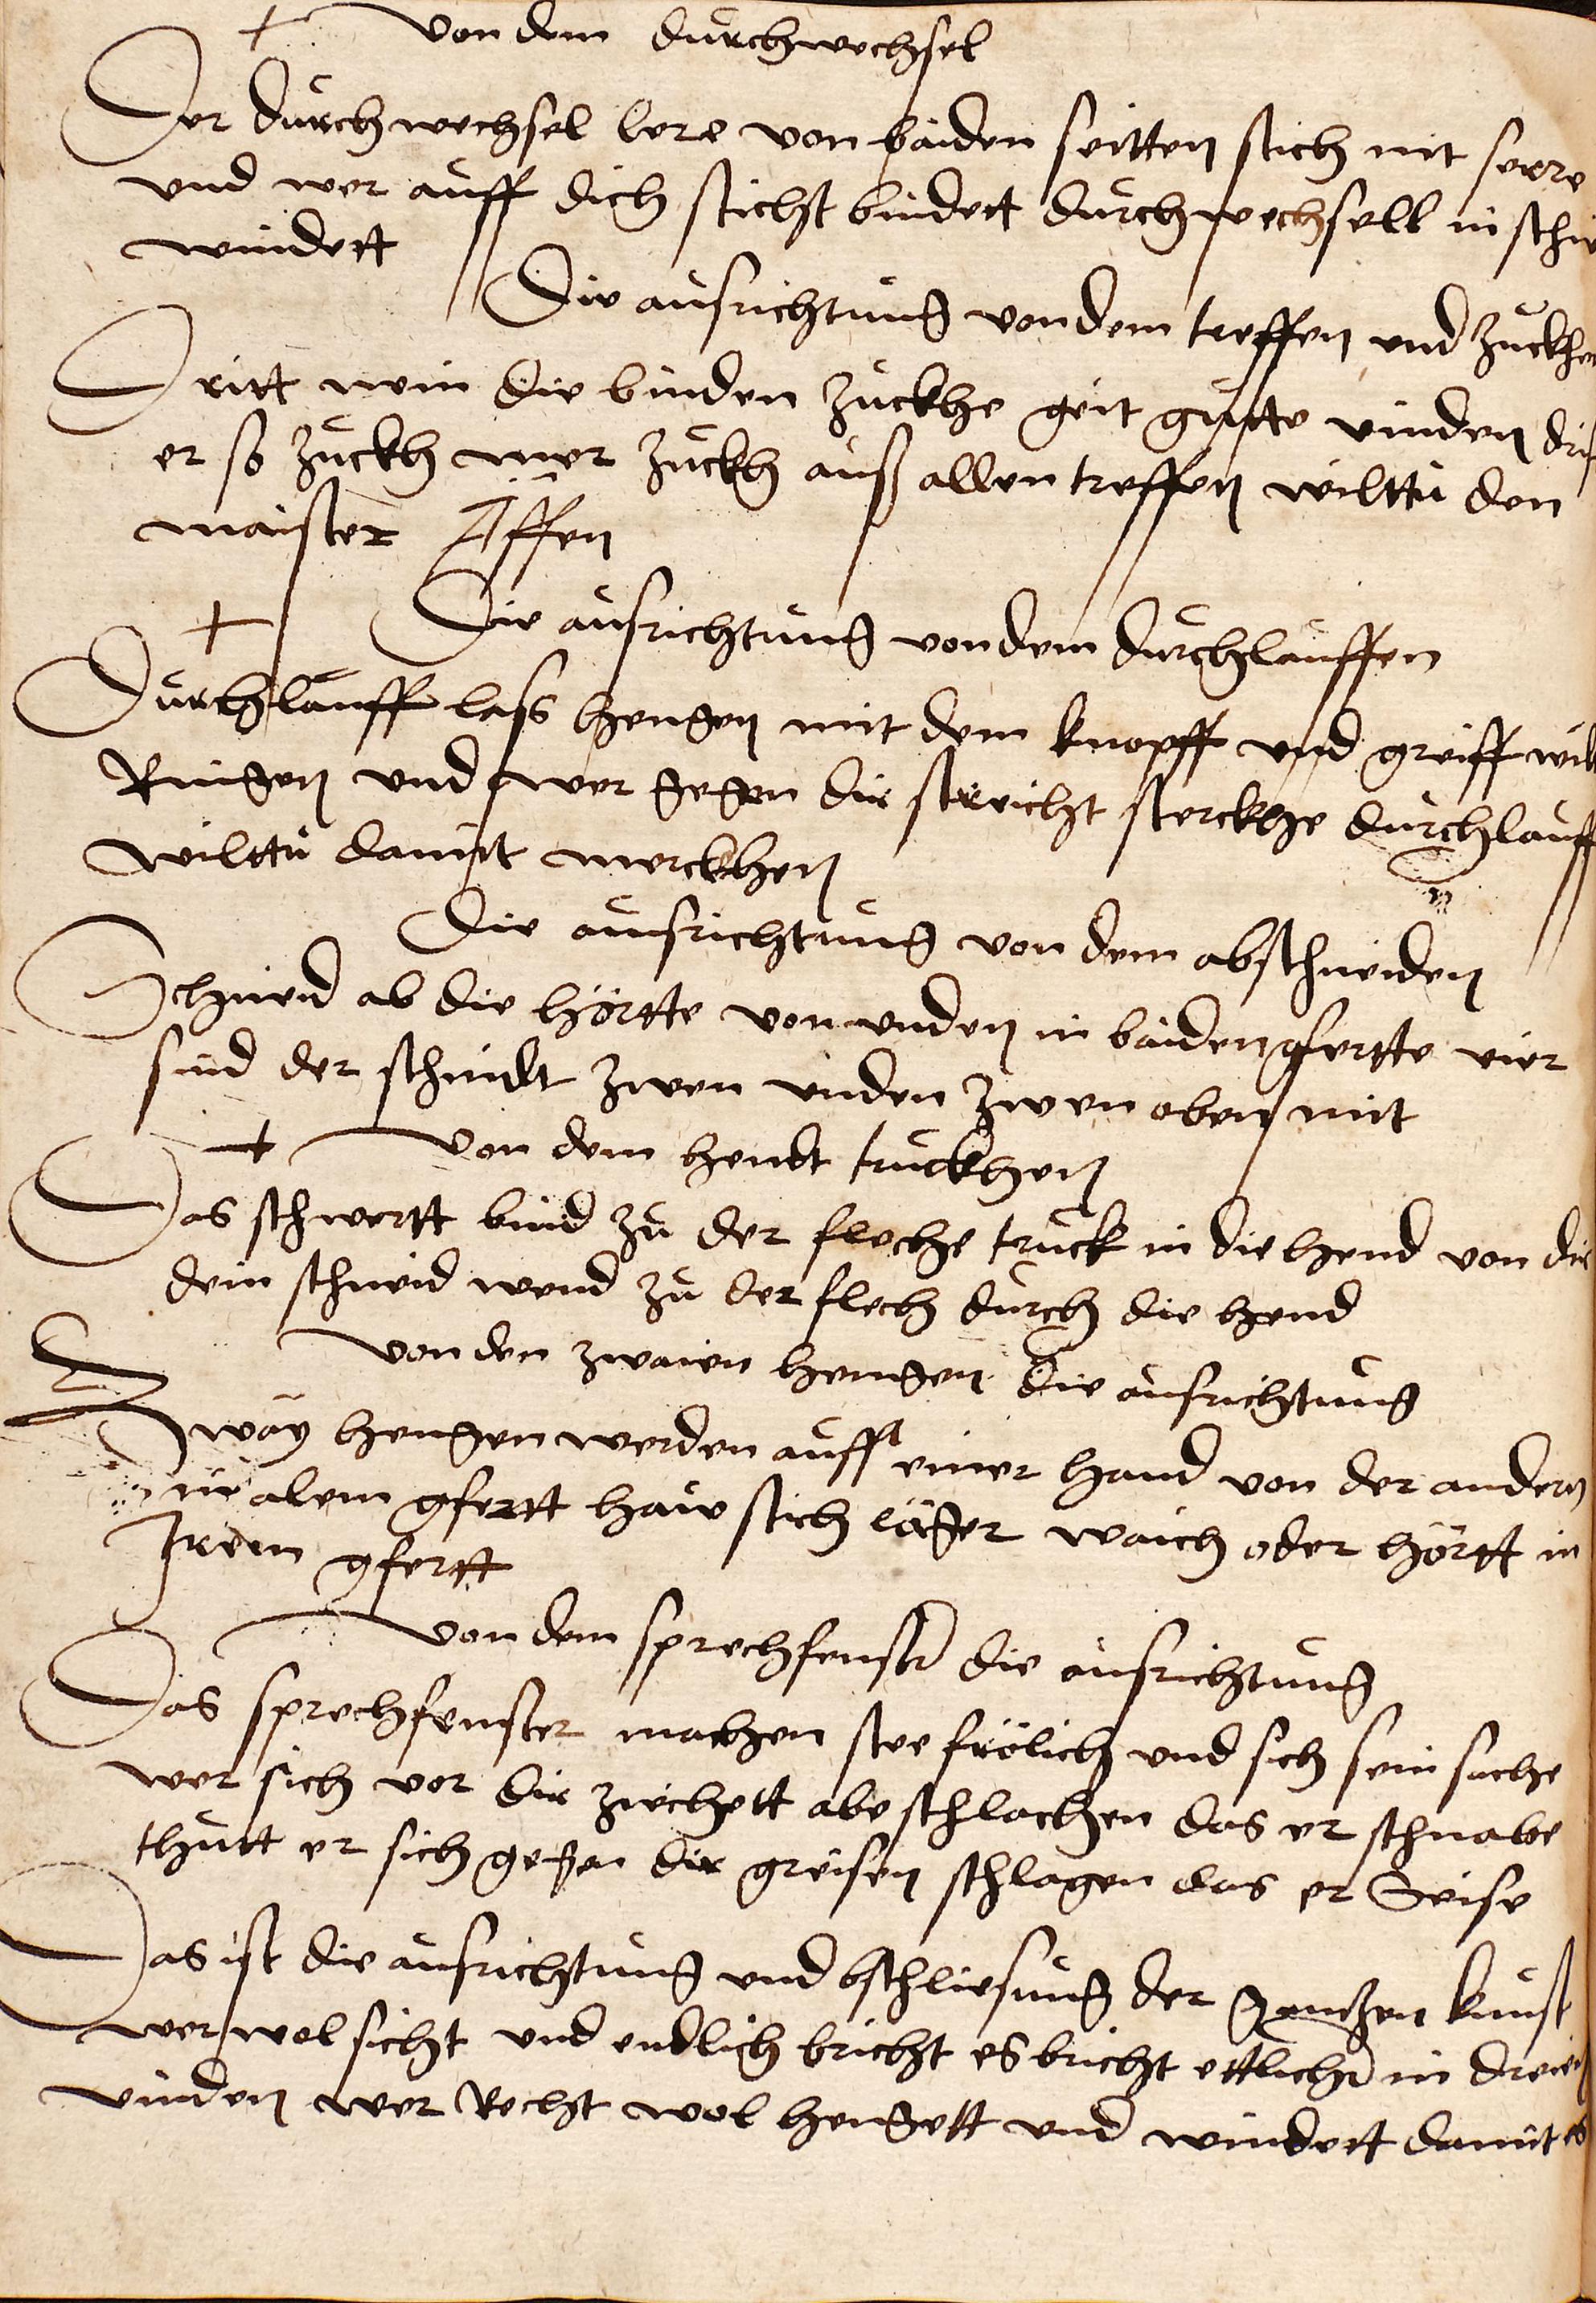 von dem durchwechsel
Der durchwechsel lere von baiden seitten stich mit serre
und wer auff dich sticht bindett durchwechsell in schir
windett
Die ausrichtung von dem treffen und zuckhen
Dritt nein die binden zuckhe geit gutte vinden drif
er so zuckh mer zuckh auß allen treffen wilttu den
maister Äffen
Die ausrichtung von dem durchlauffen
Durchlauff lass hengen mit dem knopff und greiff wilt
Ringen und wer gegen dir streicht sterckhe durchlauff
wilttu damitt merckhen
Die ausrichtung von dem abschneiden
Schneid ab die hörtte von unden in baiden gfertte vier
sind der schnidt zwen unden zwen oben mit
von dem hendt truckhen
Das schwertt bind zu der fleche truck in die hend von die
dein schneid wend zu der flech durch die hend
von den zwaien hengen die ausrichtung
Zway hengen werden auff einer hand von der andern
in alem gfertt haw stich läger waich oder hörtt in
Irem gfertt
von dem sprechfenster die ausrichtung
Das sprechfenster machen stee frölich und sich sein sache
wer sich vor dir ziechett abe schlachen das er schnabe
thutt er sich gegen dir greisen schlagen das er Geise
Das ist die ausrichtung und bschliesung der gantzen kunst
wer wol sicht und endlich bricht es bricht ettlicher in dreien
vinden wer Recht wol hengett und windett damit es